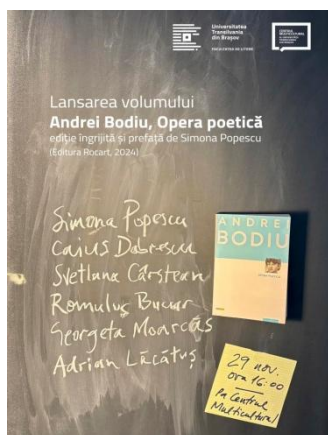 Universitatea
Transilvania
din Brașov
FACULTATEA DE LITERE
Lansarea volumului
Andrei Bodiu, Opera poetică
ediție îngrijită și prefață de Simona Popescu
(Editura Rocart, 2024)
Simona Popescu
Caius Dobrescu
Svetlana Cârstean
Romulus Bucur
Georgeta Moarcăs
Adrian Lăcătuș
ANDREI
BODIU
29 nov.
ora 16:00
La Centrul
Multicultural